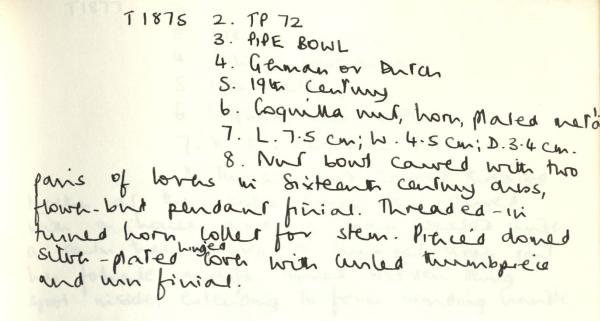 T1875 2. TP 72
3. PIPE BOWL
4. German or Dutch
5. 19th Century
6. Coquilla nut, horn, plated metal
7. L. 7.5 cm; W. 4.5 cm; D. 3.4 cm.
8. Nut bowl carved with two
pairs of lovers in Sixteenth century dress,
flower-bud pendant finial. Threaded-in
turned horn collar for stem. Pierced domed
silver-plated hinged cover with curled thumbpiece
and urn finial.